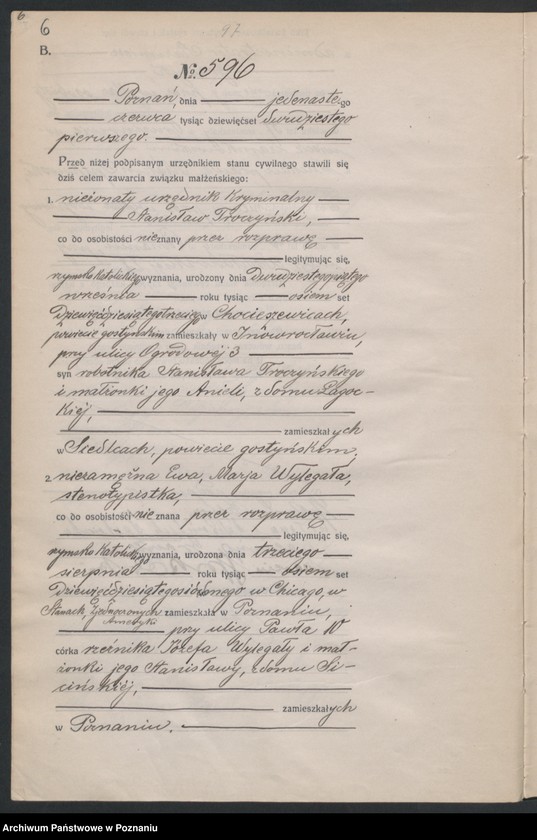 6
6
97
B.
№ 596
Poznań, dnia jedenastego
czerwca tysiąc dziewięćset dwudziestego
pierwszego.
Przed niżej podpisanym urzędnikiem stanu cywilnego stawili się
dziś celem zawarcia związku małżeńskiego:
1. nieżonaty urzędnik kryminalny
Stanisław Troczyński,
co do osobistości nieznany przez rozprawę
legitymując się,
rzymsko katolickiego wyznania, urodzony dnia dwudziestego piątego
września roku tysiąc osiem set
dziewięćdziesiątego trzeciego w Chocieszewicach,
powiecie gostyńskim zamieszkały w Inowrocławiu,
przy ulicy Ogrodowej 3
syn robotnika Stanisława Troczyńskiego
i małżonki jego Anieli, z domu Łagoc-
kiéj,
zamieszkałych
w Siedlcach, powiecie gostyńskim,
2. niezamężna Ewa, Marja Wylegała,
stenotypistka,
co do osobistości nieznana przez rozprawę
legitymując się,
rzymsko katolickiego wyznania, urodzona dnia trzeciego
sierpnia roku tysiąc osiem set
dziewięćdziesiątego siódmego w Chicago, w
Stanach Zjednoczonych zamieszkała w Poznaniu,
Ameryki
przy ulicy Pawła 10
córka rzeźnika Józefa Wylegały i mał-
żonki jego Stanisławy, z domu Si-
cińskiéj,
zamieszkałych
w Poznaniu.
Archiwum Państwowe w Poznaniu